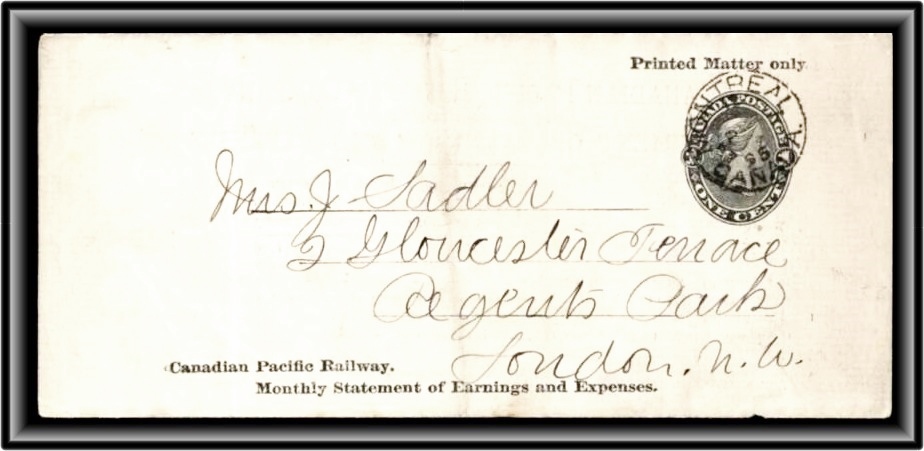 Printed Matter only
MONTREAL
CANADA POSTAGE
CANA
ONE CENT
Mrs. J Sadler
Gloucester Terrace
Regents Park
London. N. W.
Canadian Pacific Railway.
Monthly Statement of Earnings and Expenses.